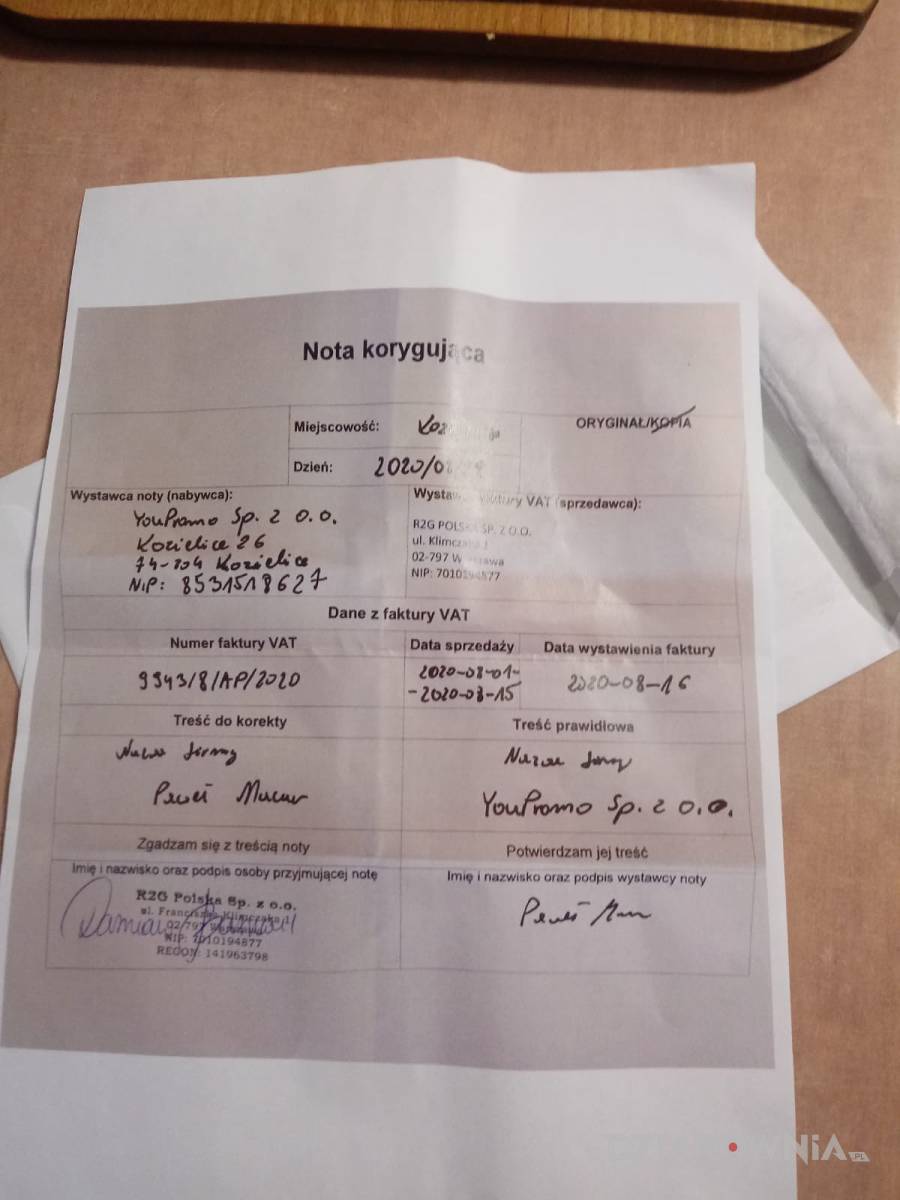 Nota korygująca
Miejscowość:
ORYGINAŁ/KOPIA
Dzień: 2020/0
Wystawca noty (nabywca):
YouPromo Sp. z o.o.
Kozielice 26
74-204 Kozielice
NIP: 8531518627
Wystawca faktury VAT (sprzedawca):
R2G POLSKA SP. Z O.O.
ul. Klimczaka 1
02-797 Warszawa
NIP: 7010194877
Dane z faktury VAT
Numer faktury VAT
Data sprzedaży
Data wystawienia faktury
9343/8/AP/2020
2020-08-01-
-2020-08-15
2020-08-16
Treść do korekty
Treść prawidłowa
Nazwa firmy
Paweł
Nazwa firmy
YouPromo Sp. z o.o.
Zgadzam się z treścią noty
Potwierdzam jej treść
Imię i nazwisko oraz podpis osoby przyjmującej notę
Imię i nazwisko oraz podpis wystawcy noty
R2G Polska Sp. z o.o.
ul. Franciszka Klimczaka 1
02-797 Warszawa
NIP: 7010194877
REGON: 141963798
Damian
Paweł